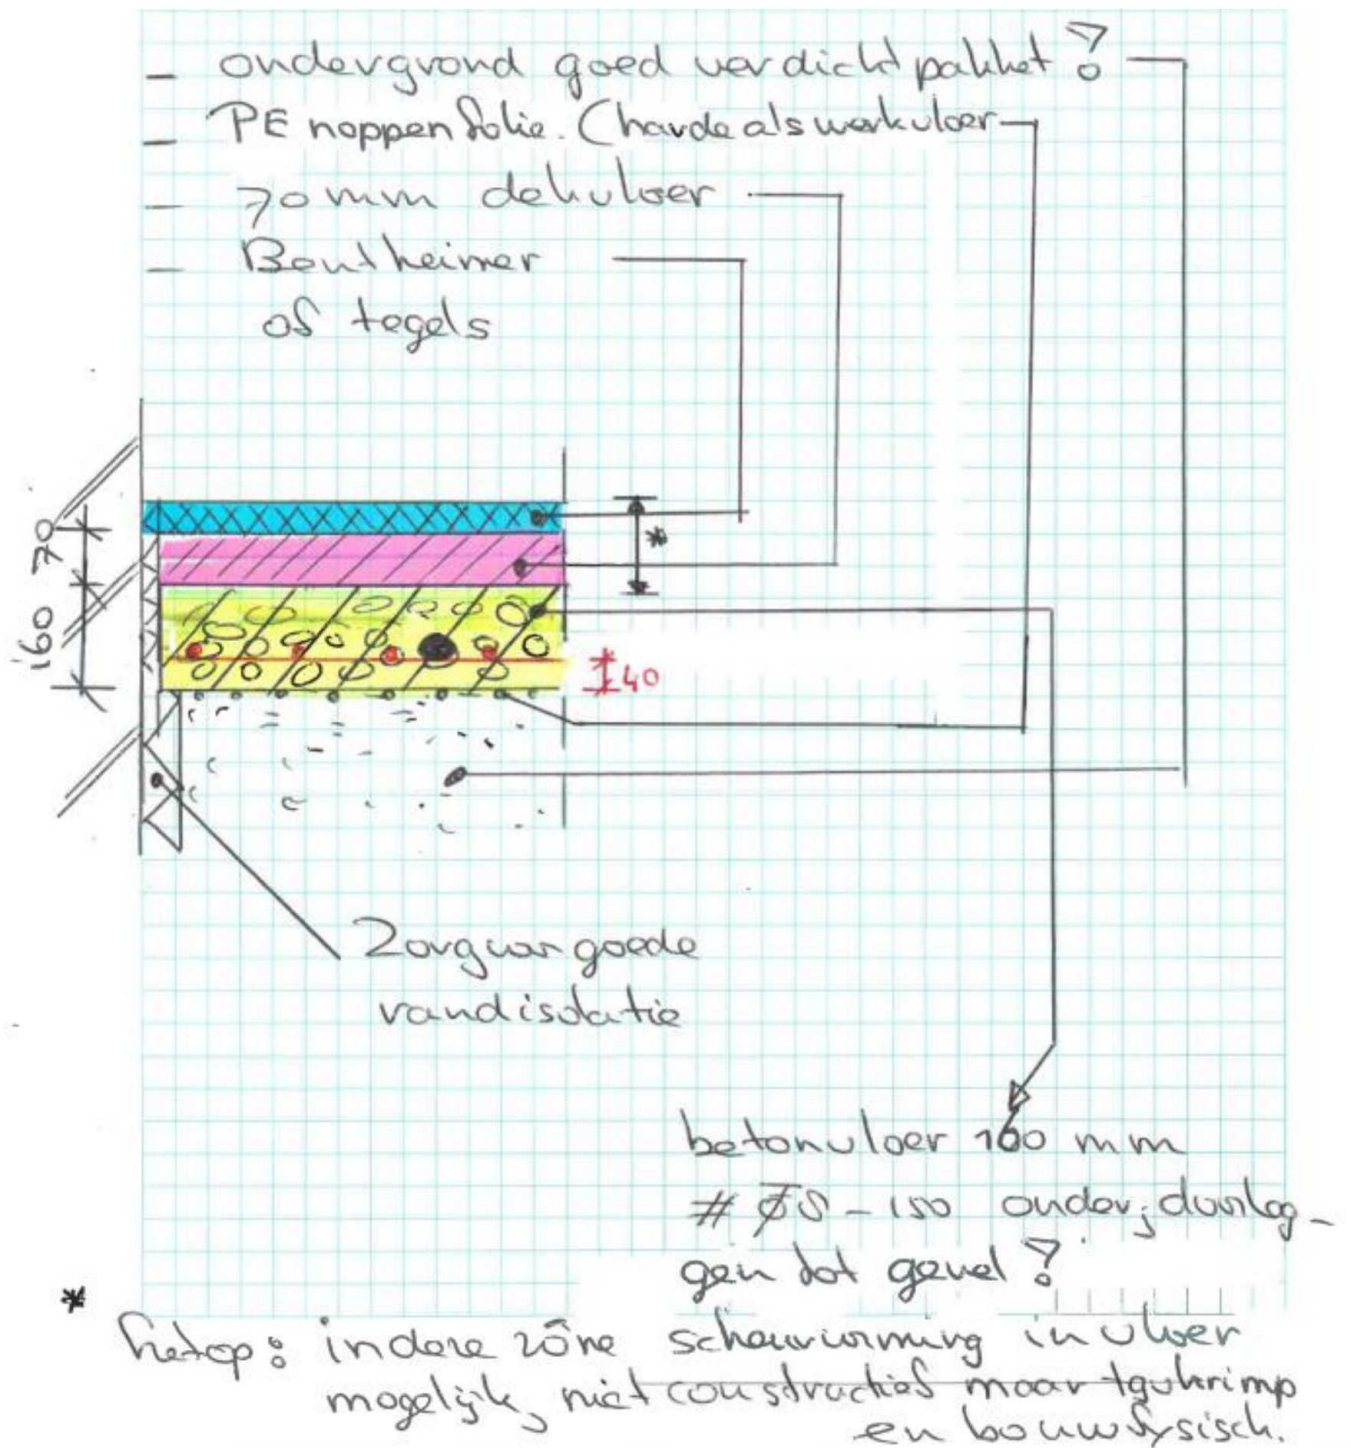 – ondergrond goed verdicht pakket!
– PE noppenfolie. (harde als werkvloer
– 70 mm dekvloer
– Bentheimer
of tegels
70
*
160
40
Zorg voor goede
randisolatie
betonvloer 160 mm
# Ø8 – 150 onder; doorleg-
gen tot gevel!
*
Let op: in deze zône scheurvorming in vloer
mogelijk, niet constructief maar tgv krimp
en bouwfysisch.